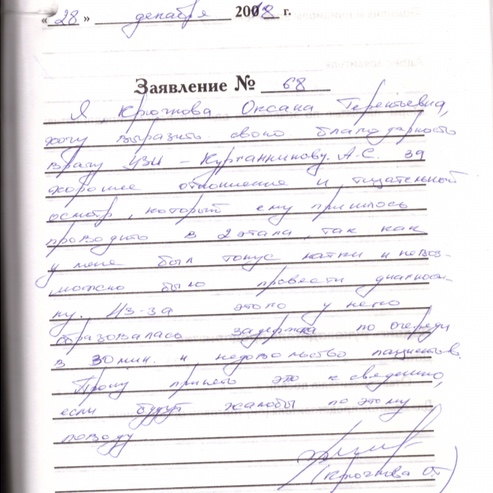 « 28 » декабря 2008 г.
Заявление № 68
Я Крючкова Оксана Терентьевна,
хочу выразить свою благодарность
врачу УЗИ – Курпанникову. А.С. за
хорошее отношение и тщательной
осмотр, который ему пришлось
проводить в 2 этапа, так как
у меня был тонус матки и невоз-
можно было провести диагнос-
ку. Из-за этого у него
образовалась задержка по очереди
в 30 мин. и недовольство пациентов,
Прошу принять это к сведению,
если будут жалобы по этому
поводу
(Крючкова ОТ)